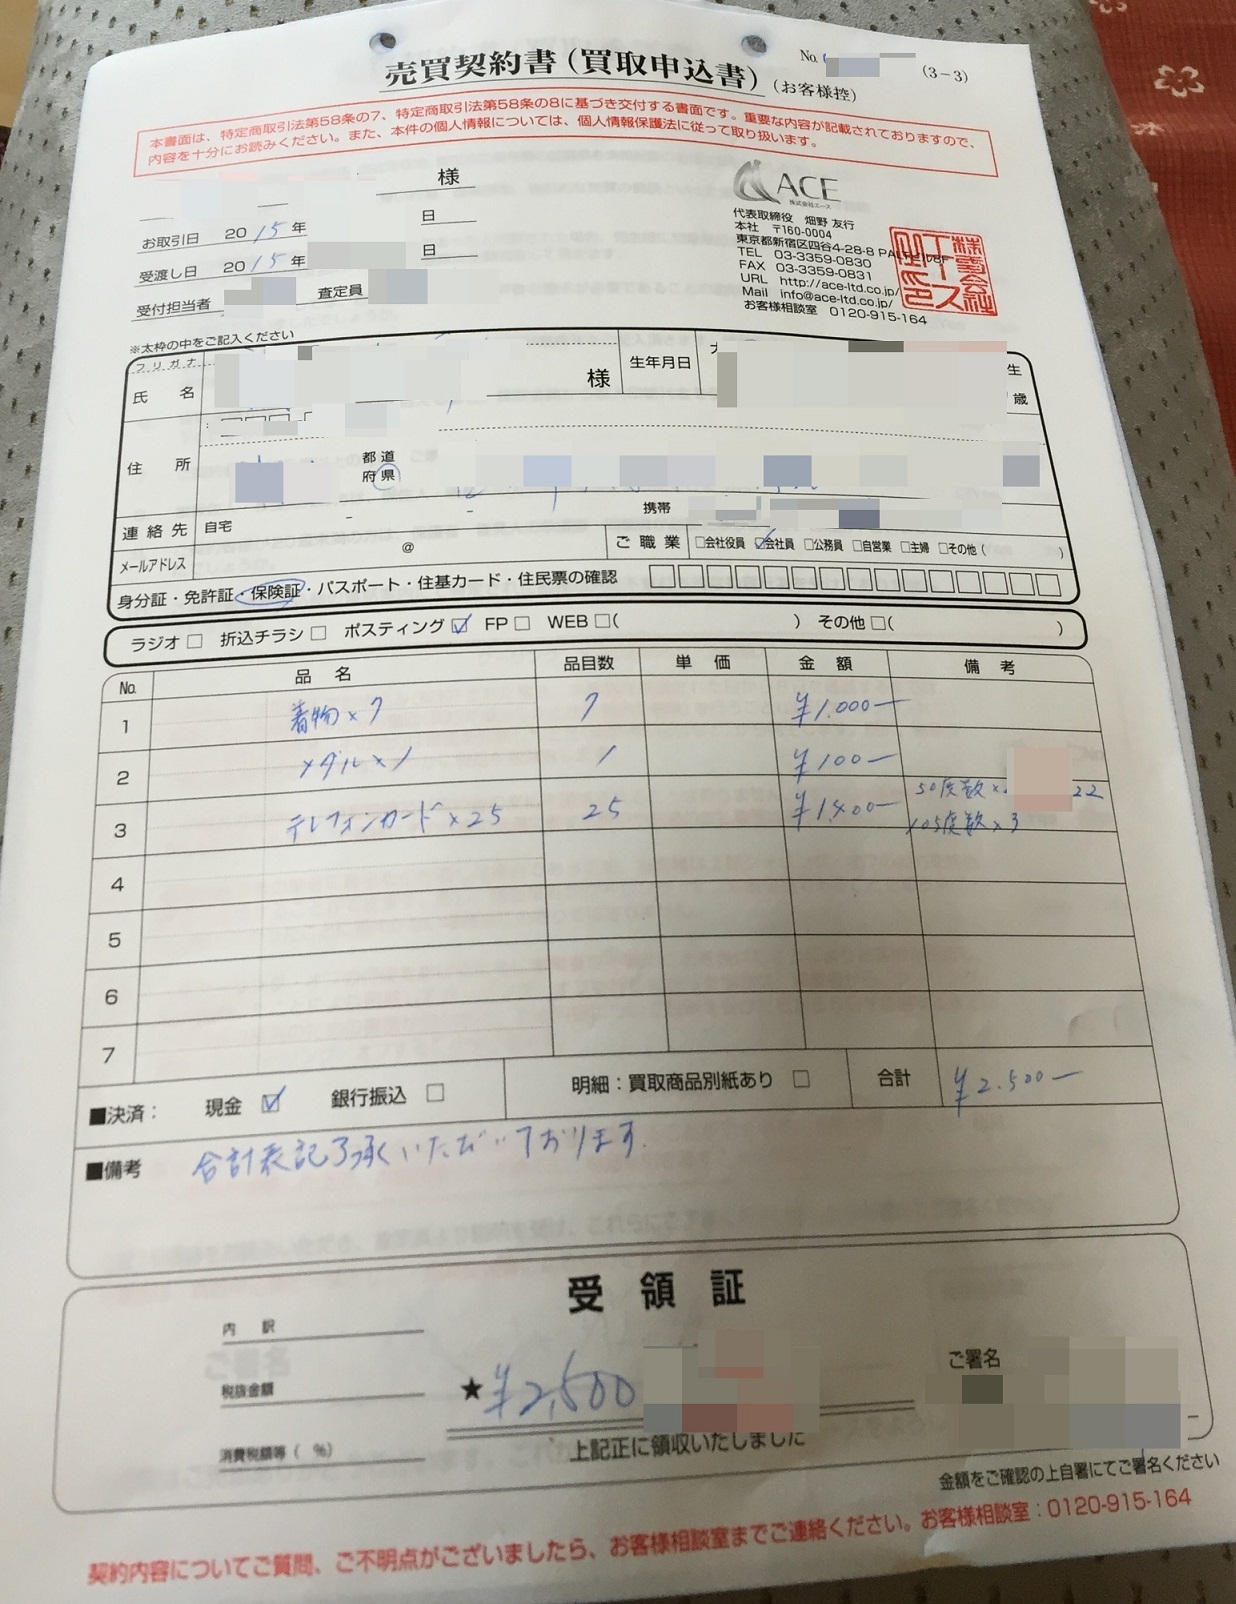 売買契約書(買取申込書)(お客様控)
No.
(3-3)
本書面は、特定商取引法第58条の7、特定商取引法第58条の8に基づき交付する書面です。重要な内容が記載されておりますので、
内容を十分にお読みください。また、本件の個人情報については、個人情報保護法に従って取り扱います。
様
お取引日 2015年 日
受渡し日 2015年 日
受付担当者 査定員
ACE
株式会社エース
代表取締役 畑野 友行
本社 〒160-0004
東京都新宿区四谷4-28-8
TEL 03-3359-0830
FAX 03-3359-0831
URL http://ace-ltd.co.jp/
Mail info@ace-ltd.co.jp/
お客様相談室 0120-915-164
※太枠の中をご記入ください
フリガナ
氏 名 様 生年月日 生
歳
住 所 都道
府県
連絡先 自宅 - - 携帯
メールアドレス @ ご職業 □会社役員 ☑会社員 □公務員 □自営業 □主婦 □その他( )
身分証・免許証・保険証・パスポート・住基カード・住民票の確認
ラジオ □ 折込チラシ □ ポスティング ☑ FP □ WEB □( ) その他 □( )
No. 品名 品目数 単価 金額 備考
1 着物×7 7 ¥1.000-
2 メダル×1 1 ¥100-
3 テレフォンカード×25 25 ¥1.400- 50度数× 22
105度数×3
4
5
6
7
■決済: 現金 ☑ 銀行振込 □ 明細:買取商品別紙あり □ 合計 ¥2.500-
■備考 合計表記了承いただいております.
受領証
内 訳
税抜金額
消費税額等( %)
★¥2,500
上記正に領収いたしました
ご署名
金額をご確認の上自署にてご署名ください
契約内容についてご質問、ご不明点がございましたら、お客様相談室までご連絡ください。お客様相談室:0120-915-164